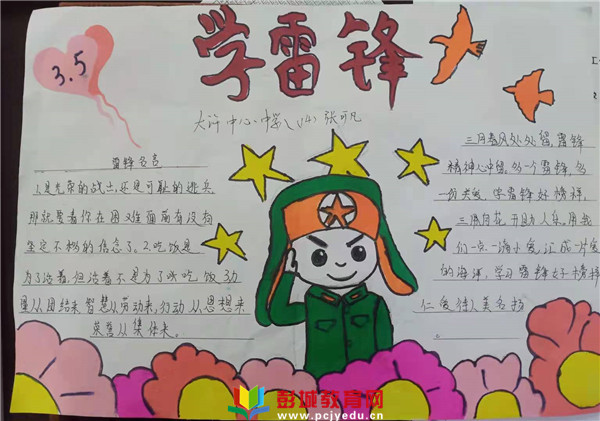 3.5
学雷锋
大许中心中学
张
雷锋名言
1.是光荣的战士,还是可耻的逃兵
那就要看你在困难面前有没有
坚定不移的信念了。2.吃饭是
为了活着,但活着不是为了吃饭3.力
量从团结来智慧从劳动来,行动从思想来
荣誉从集体来。
三月春风处处留,雷锋
精神心中留,多一个雷锋,多
一份关爱,学雷锋好榜样,
三月百花开助人乐,用我
们一点一滴小爱,汇成一片爱
的海洋,学习雷锋好榜样
仁爱待人美名扬
彭城教育网
www.pcjyedu.cn